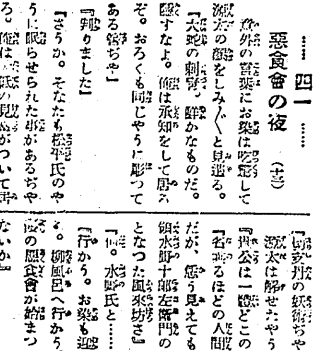 四一
惡食會の夜
意外の言葉にお染は吃驚して
源太の顔をしみ〴〵と見送る。
『大蛇の刺青、鮮かなものだ。
隠すなよ。俺は承知をして居る
ぞ。おろくも同じやうに彫つて
ある筈ぢや』
『判りました』
『さうか。そなたも松平氏のや
うに眠らせられた事があるぢや
ろ。俺は
がついて居
『切支丹の妖術ぢや
源太は解せたやう
『貴公は一體どこの
『名乗るほどの人間
だが、斯う見えても
領水野十郎左衛門の
となつた風來坊さ』
『何。水野氏と……
『行かう。お染も迎
と。柳風呂へ行かう
の惡食會が始まつ
ないか』